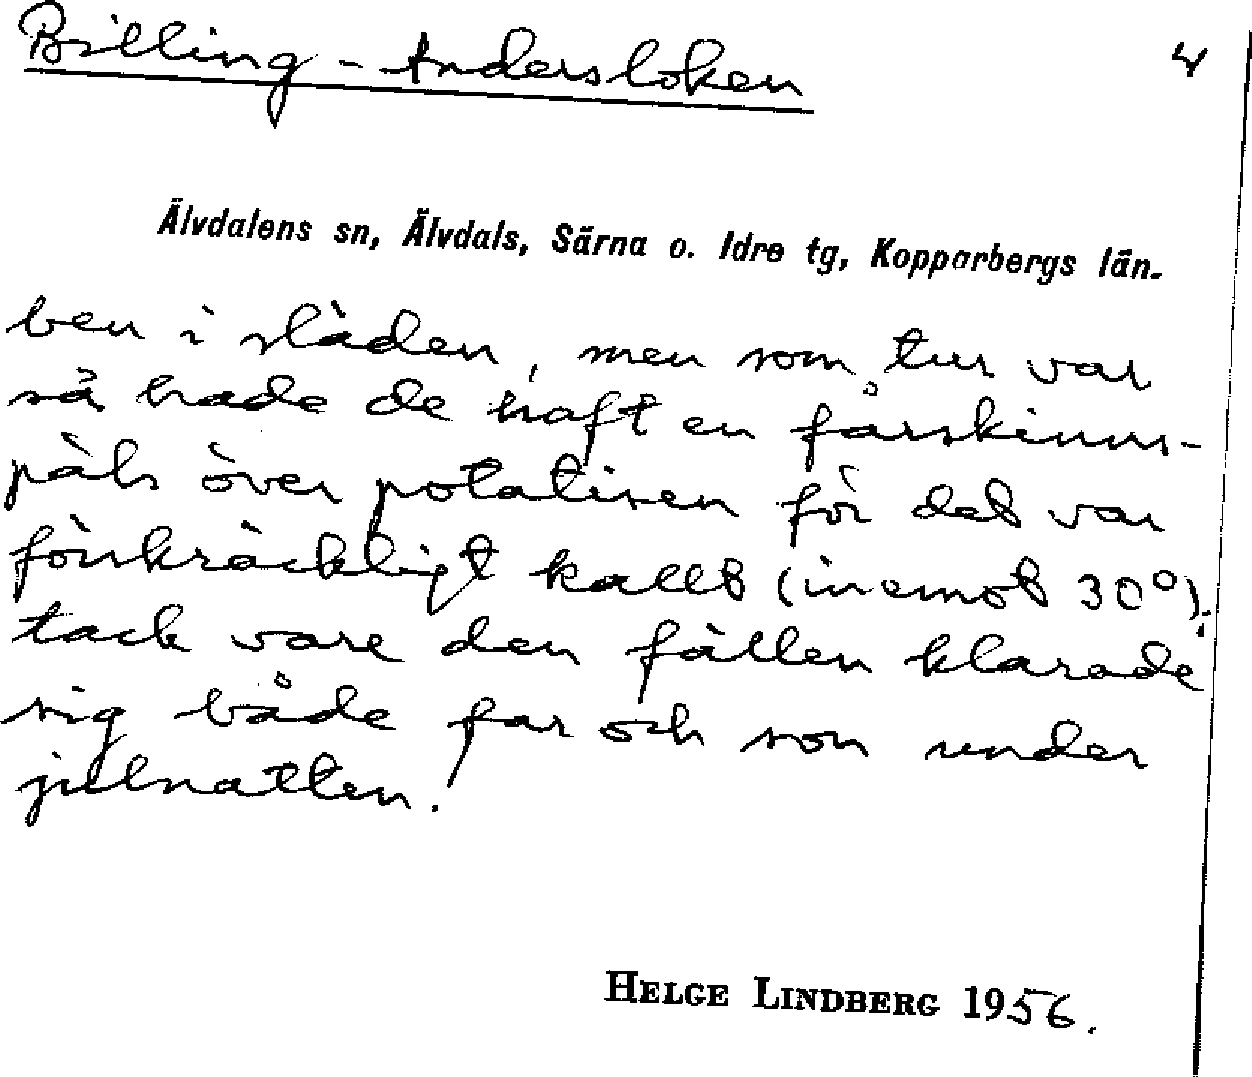 Billing-Andersloken 4
Älvdalens sn, Älvdals, Särna o. Idre tg, Kopparbergs län.
ben i släden, men som tur var
så hade de haft en fårskinns-
päls över potatisen för det var
förskräckligt kallt (inemot 30°).
tack vare den fällen klarade
sig både far och son under
julnatten!
HELGE LINDBERG 1956.